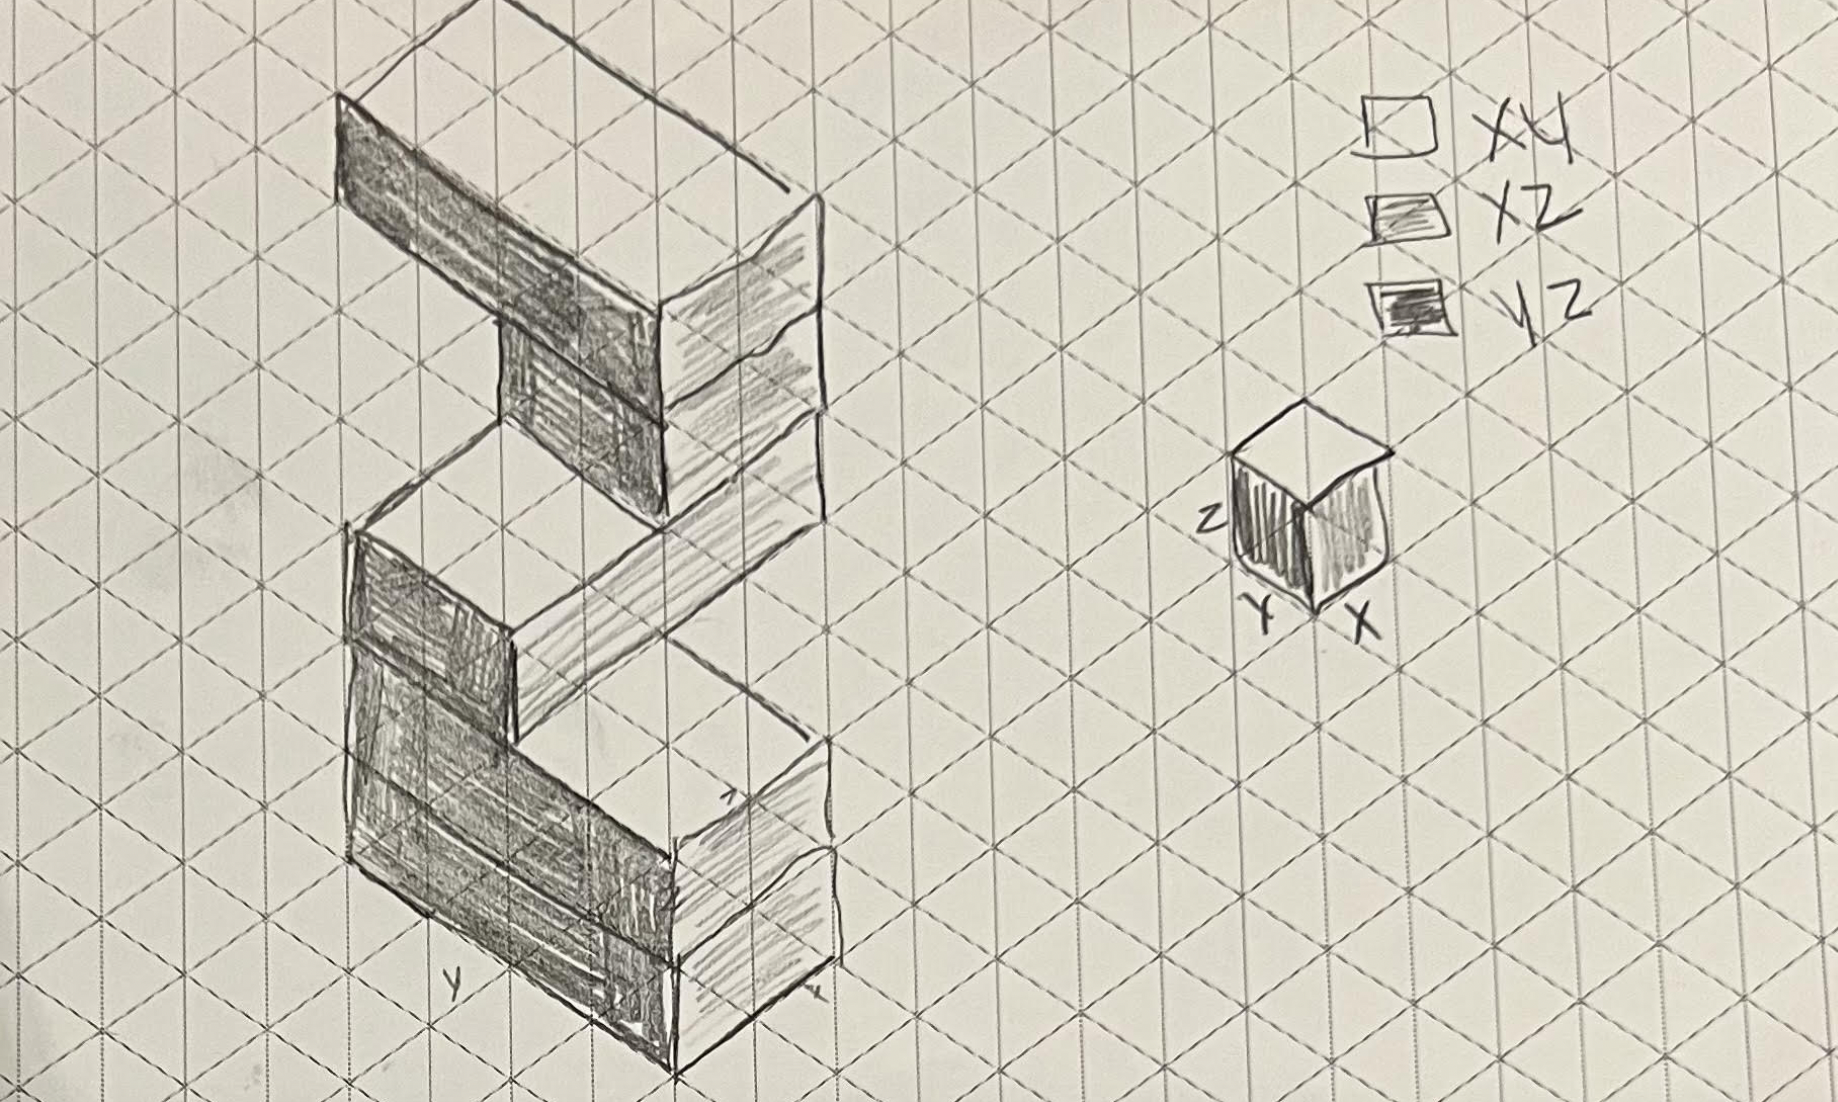 XY
XZ
YZ
Z
Y X
Y
x